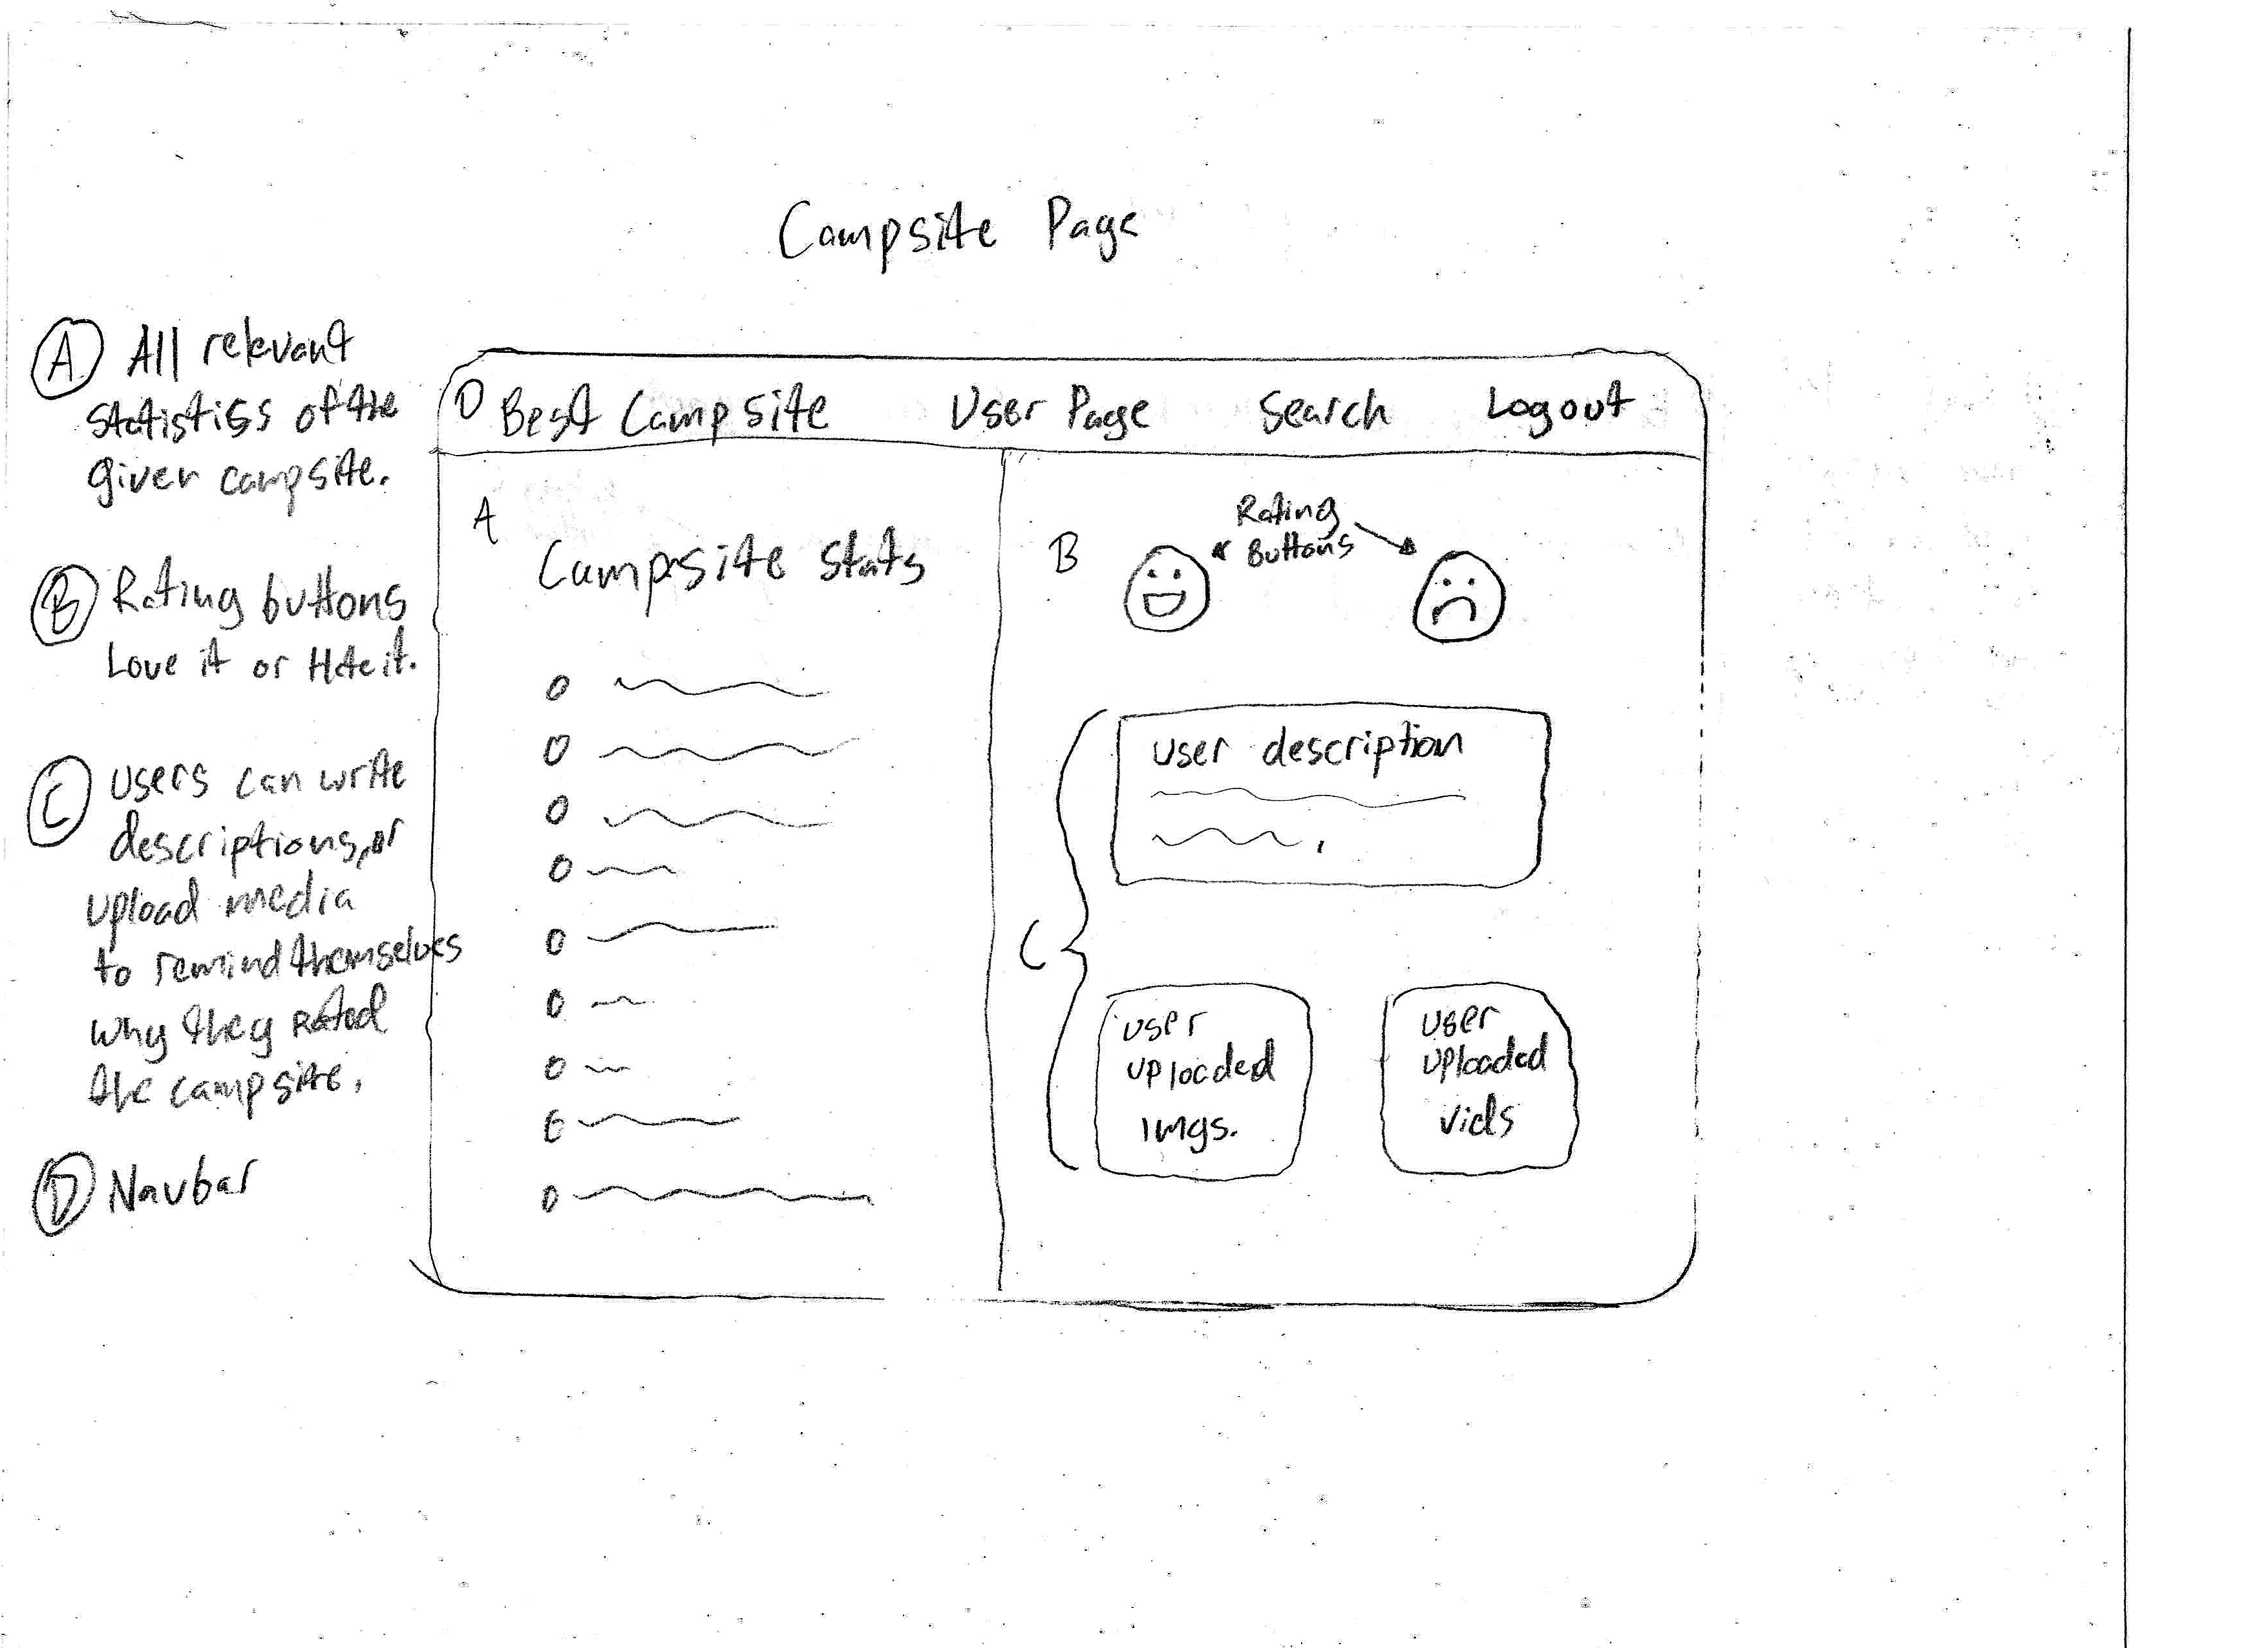 Campsite Page
A All relevant
statistiss of the
given campsite.
B Rating buttons
Love it or Hate it.
C users can write
descriptions, or
upload media
to remind themselves
why they rated
the campsite.
D Navbar
D Best Campsite User Page Search Logout
A
Campsite stats
B
Rating
Buttons
C
user description
user
uploaded
imgs.
user
uploaded
vids